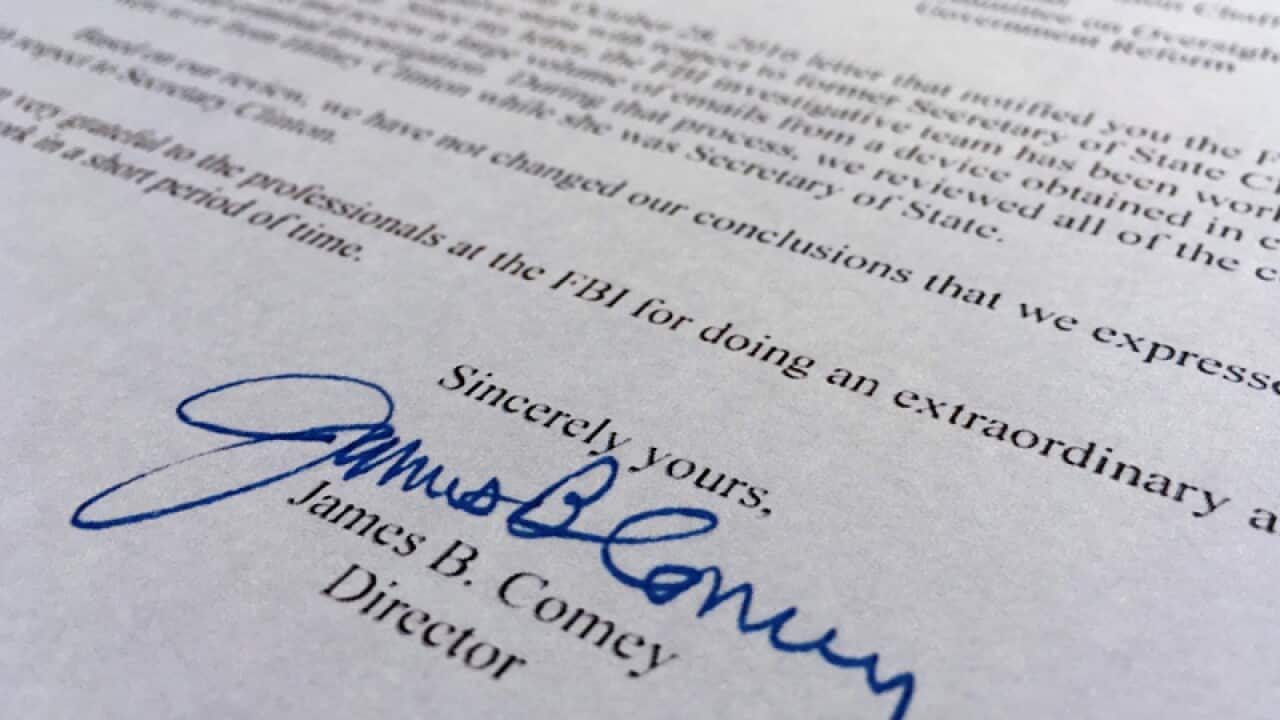 on Oversight
Government Reform
October 28, 2016 letter that notified you the F
with respect to former Secretary of State Cl
Since my letter, the FBI investigative team has been work
review a large volume of emails from a device obtained in c
criminal investigation. During that process, we reviewed all of the c
or from Hillary Clinton while she was Secretary of State.
Based on our review, we have not changed our conclusions that we expresse
respect to Secretary Clinton.
very grateful to the professionals at the FBI for doing an extraordinary a
in a short period of time.
Sincerely yours,
James B Comey
James B. Comey
Director